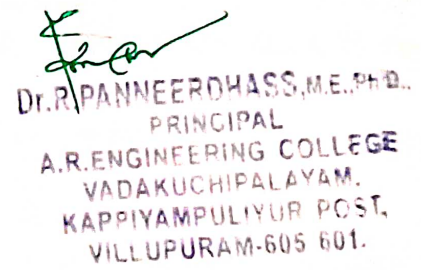 Dr.R.PANNEERDHASS,M.E.,Ph.D..
PRINCIPAL
A.R.ENGINEERING COLLEGE
VADAKUCHIPALAYAM.
KAPPIYAMPULIYUR POST,
VILLUPURAM-605 601.